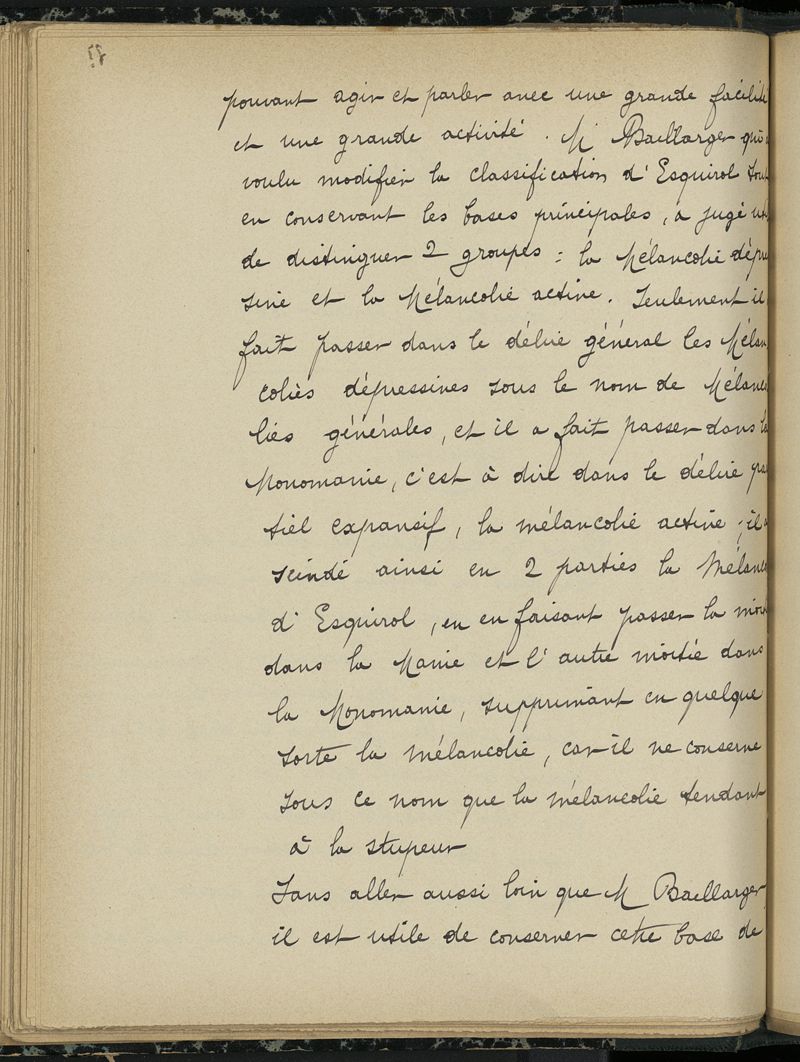 pouvant agir et parler avec une grande facilité
et une grande activité. M Baillarger qui a
voulu modifier la classification d'Esquirol tou
en conservant les bases principales, a jugé uti
de distinguer 2 groupes : la Mélancolie dépre
sive et la Mélancolie active. Seulement il
fait passer dans le délire général les Mélan
colies dépressives sous le nom de Mélanco
lies générales, et il a fait passer dans la
Monomanie, c'est à dire dans le délire par
tiel expansif, la mélancolie active ; il a
scindé ainsi en 2 parties la Mélanco
d'Esquirol, en en faisant passer la moit
dans la Manie et l'autre moitié dans
la Monomanie, supprimant en quelque
sorte la mélancolie, car il ne conserve
sous ce nom que la mélancolie tendant
à la stupeur
Sans aller aussi loin que M Baillarger,
il est utile de conserver cette base de